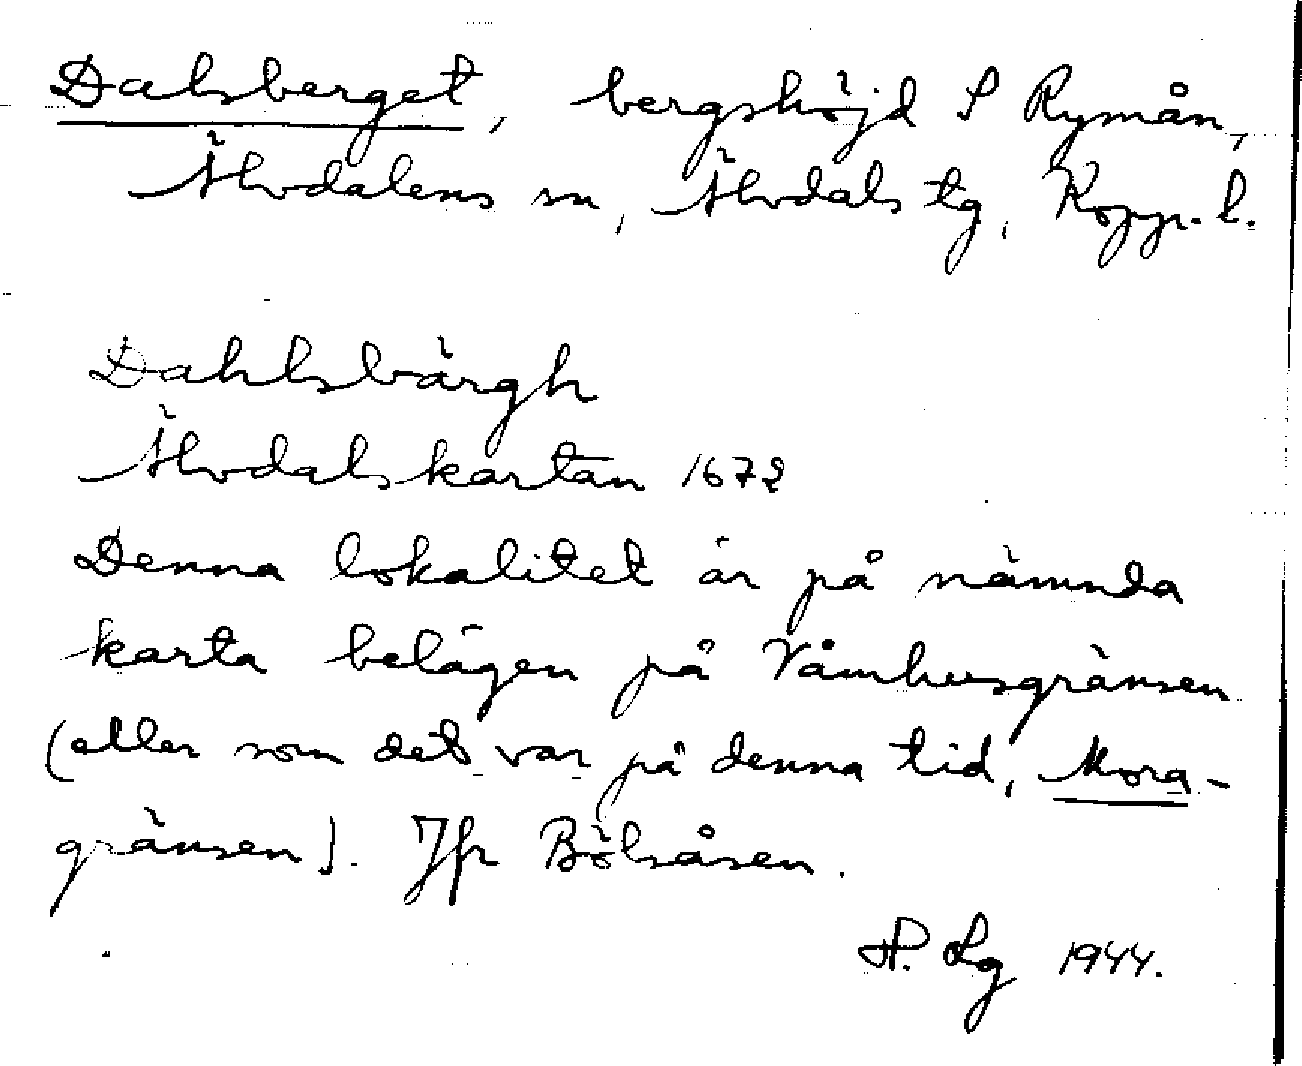 Dalsberget, bergshöjd S Rymån,
Älvdalens sn, Älvdals tg, Kopp. l.
Dahlsbärgh
Älvdalskartan 1672
Denna lokalitet är på nämnda
karta belägen på Våmhusgränsen
(eller som det var på denna tid, Mora-
gränsen). Jfr Bölsåsen.
H. Lg 1944.